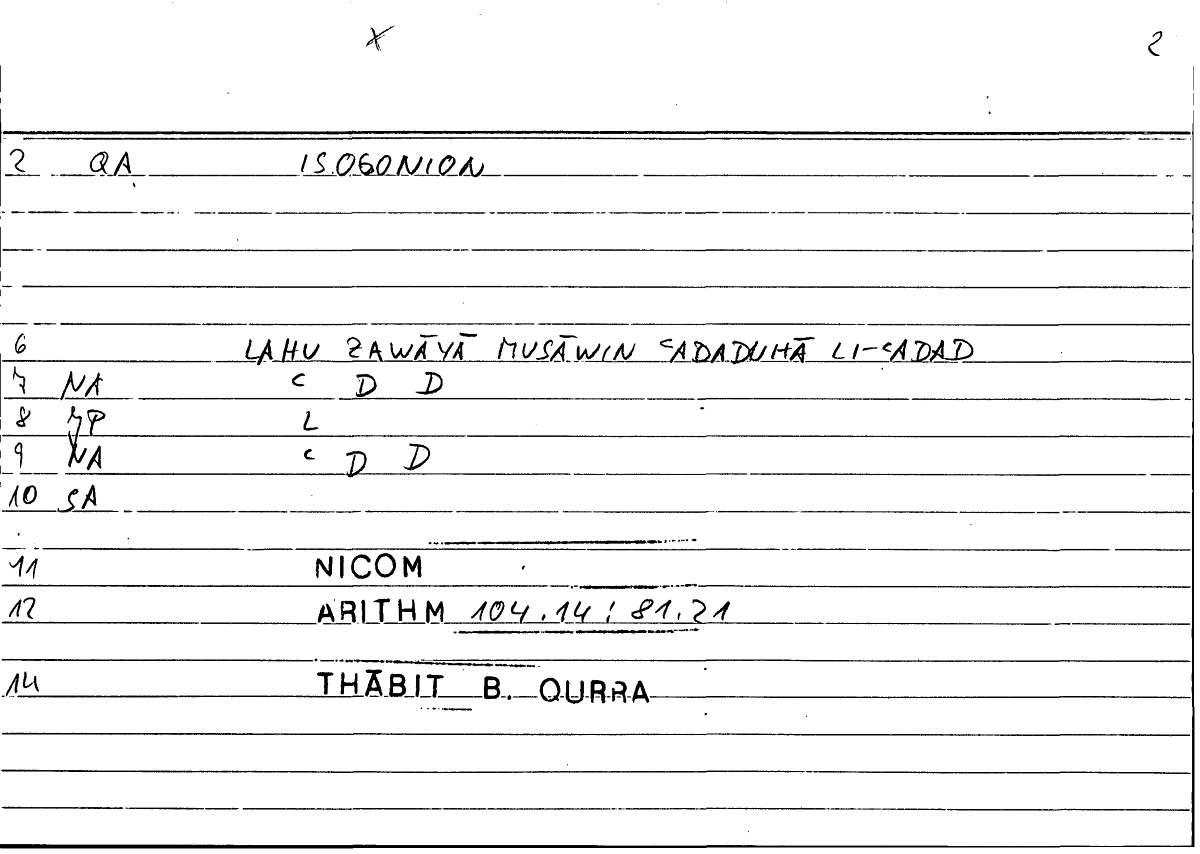 X 2
2 QA ISOGONION
6 LAHU ZAWĀYĀ MUSĀWIN ʿADADUHĀ LI-ʿADAD
7 NA ʿ D D
8 JP L
9 NA ʿ D D
10 SA
11 NICOM
12 ARITHM 104.14 ; 81.21
14 THĀBIT B. QURRA